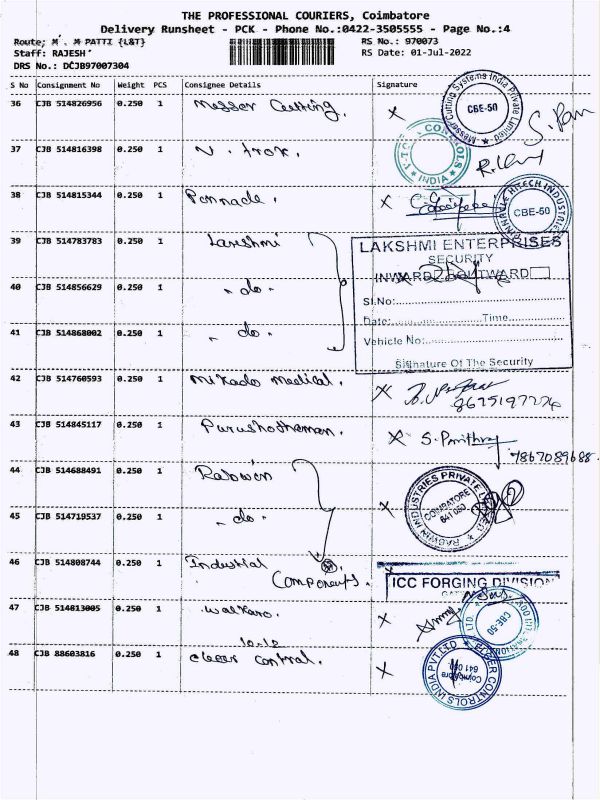 THE PROFESSIONAL COURIERS, Coimbatore
Delivery Runsheet - PCK - Phone No.:0422-3505555 - Page No.:4
Route: M . M PATTI {L&T}
RS No.: 970073
Staff: RAJESH
RS Date: 01-Jul-2022
DRS No.: DCJB97007304
S No Consignment No Weight PCS Consignee Details Signature
36 CJB 514826956 0.250 1 Messer Cutting. X
Messer Cutting Systems India Private Limited
CBE-50
S. Pan
37 CJB 514816398 0.250 1 N. trox.
CONTROLS
INDIA
38 CJB 514815344 0.250 1 Pennacle. X
PINNACLE HITECH INDUSTRIES
CBE-50
39 CJB 514783783 0.250 1 Lakshmi
LAKSHMI ENTERPRISES
SECURITY
INWARD OUTWARD
Sl.No:
40 CJB 514856629 0.250 1 - do -
Date: Time
41 CJB 514868002 0.250 1 - do -
Vehicle No:
Signature Of The Security
42 CJB 514760593 0.250 1 Mikado medical. X
8675197224
43 CJB 514845117 0.250 1 Purushothaman. X
7867089688
44 CJB 514688491 0.250 1 Radwin
RADWIN INDUSTRIES PRIVATE LIMITED
COIMBATORE
641 050
45 CJB 514719537 0.250 1 - do - X
46 CJB 514808744 0.250 1 Industrial
Components. X
ICC FORGING DIVISION
47 CJB 514813005 0.250 1 Walkaro. X
CBE-50
10.10
48 CJB 88603816 0.250 1 elecer control. X
ELGER CONTROLS INDIA PVT LTD
Coimbatore
641 050